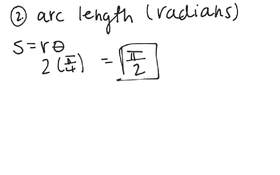 ② arc length (radians)
S = rθ
2 (π/4) = π/2